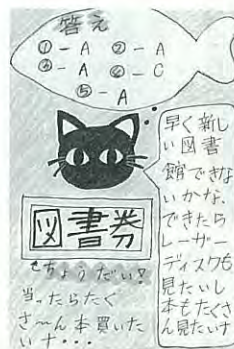 答え
①-A ②-A
③-A ④-C
⑤-A
早く新し
い図書
館できな
いかな。
できたら
レーザー
ディスクも
見たいし
本もたくさ
ん見たいナ
図書券
もちょうだい!
当ったらたく
さ〜ん本買いた
いナ・・・